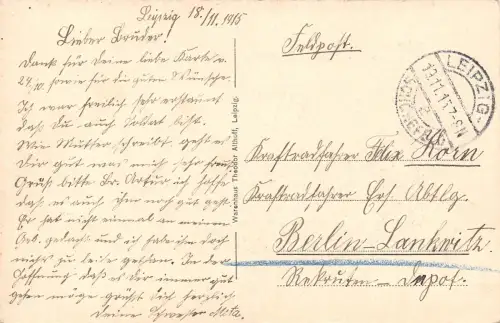 Leipzig 18/11. 1915
Lieber Bruder!
Dank für deine liebe Karte v.
24/10. sowie für die guten Wünsche.
Ich war freilich sehr erstaunt
daß du auch Soldat bist.
Wie Mutter schreibt geht es
Dir gut was mich sehr freut
Gruß bitte Br. Artur ich hoffe
daß es auch ihm noch gut geht.
Er hat nicht einmal an meinen
Geb. gedacht und ich habe ihm doch
nichts zu leide gethan. In der
Hoffnung daß es dir immer gut
gehen möge grüßt dich herzlich
Deine Schwester Meta.
Warenhaus Theodor Althoff, Leipzig.
Feldpost.
LEIPZIG
18.11.15.7-8N
Kraftradfahrer Felix Korn
Kraftradfahrer Ers. Abtlg.
Berlin-Lankwitz
Rekruten-Depot.